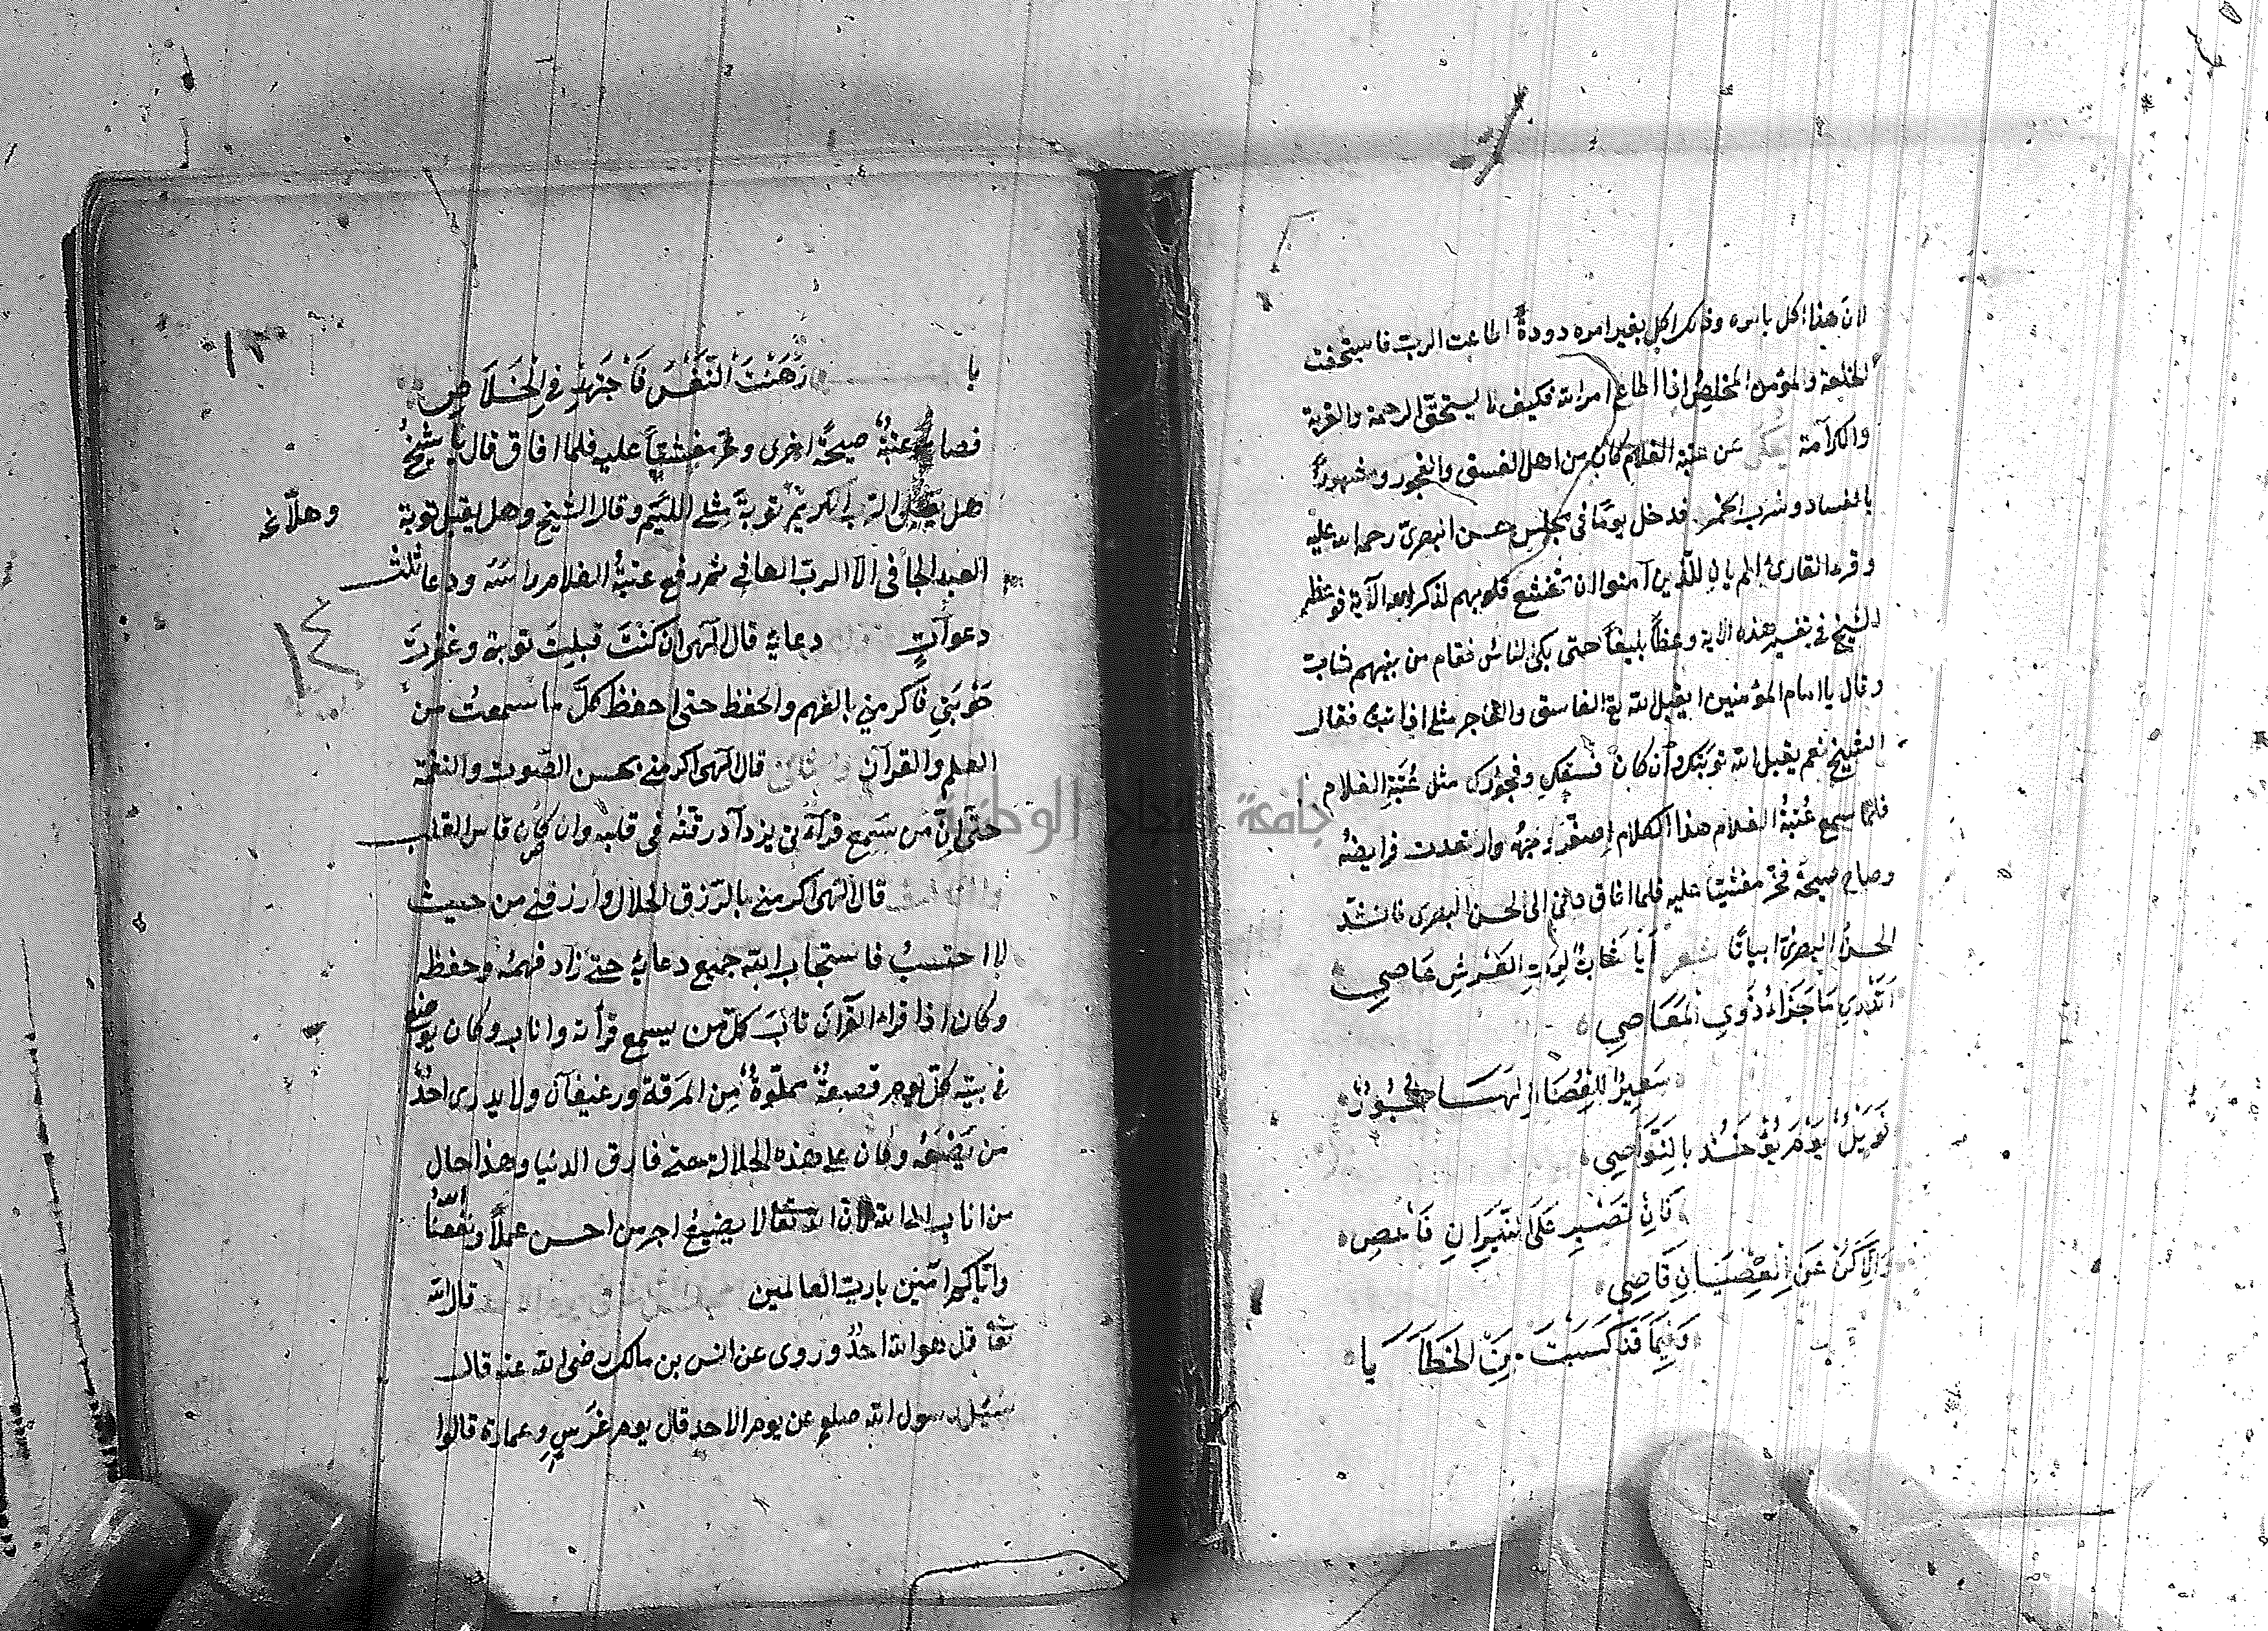 لان هذا اكل بامره وذلك اكل بغير امره دودةٌ اطاعت الرب فاستحقت
الخلعة والمؤمن المخلص اذا اطاع امر الله فكيف لا يستحق الرحمة والقربة
والكرامة يحكى عن عتبة الغلام كان من اهل الفسق والفجور ومشهوراً
بالفساد وشرب الخمر فدخل يوماً في مجلس حسن البصرى رحمة الله عليه
وقرء القارئ الم يان للذين آمنوا ان تخشع قلوبهم لذكر الله الآية فوعظ
الشيخ في تفسير هذه الاية وعظاً بليغاً حتى بكى الناس فقام من بينهم شاب
وقال يا امام المؤمنين ايقبل الله تع الفاسق والفاجر مثلي اذا تبت فقال
الشيخ نعم يقبل الله توبتك وان كان فسقك وفجورك مثل عُتبة الغلام
فلما سمع عُتبةُ الغلام هذا الكلام اصفر وجهُه وارتعدت فرايضهُ
وصاح صيحةً فخرّ مغشيّاً عليه فلما افاق دنى الى الحسن البصرى فانشد
الحسن البصرى ابياتاً شعر أيا شابٌ لِرَبِّ العَرْشِ عَاصِي
أتَدْرِي مَا جَزَاءُ ذَوِي المَعَاصِي
سَعِيرٌ لِلْعُصَاةِ لَهَا ثُبُورٌ
فَوَيْلٌ يَوْمَ يُؤْخَذُ بِالنَّوَاصِي
فَاِنْ تَصْبِرْ عَلَى النِّيرَانِ فَاعْصِه
وَاِلَّا كُنْ عَنِ العِصْيَانِ قَاصِي
وَفِيمَا قَدْ كَسَبْتَ مِنَ الخَطَايَا
١٣
رَهَنْتَ النَّفْسَ فَاجْتَهِدْ فِي الخَلَاصِ
فصاح عتبةُ صيحةً اخرى وخرّ مغشيّاً عليه فلما افاق قال يا شيخُ
هل يقبل الرب الكريم توبةَ مثلي اللئيم وقال الشيخ وهل يقبل توبة
العبد الجافي الا الرب العافي ثم رفع عتبةُ الغلام رأسَه ودعا ثلث
دعوآتٍ دعاية قال الهى ان كنتَ قبلتَ توبتي وغفرتَ
حَوْبَتي فاكرمني بالفهم والحفظ حتى احفظ كلَّ ما سمعتُ من
العلم والقرآن قال الهى اكرمني بحسن الصّوت والنغمة
حتى انّ من سمع قرآءتي يزدآد رقتُه في قلبه وان كان قاس القلب
قال الهى اكرمني بالرّزق الحلال وارزقني من حيث
لا احتسبُ فاستجاب الله جميع دعائه حتى زاد فهمُه وحفظه
وكان اذا قرء القرآن تابَ كلّ من يسمع قرأته واناب وكان يوضع
في بيته كلّ يوم قصعةٌ مملوّةٌ من المَرَقة ورغيفآن ولا يدرى احدٌ
من يَضَعُه وكان على هذه الحالة حتى فارق الدنيا وهذا حال
من اناب الى الله لان الله تعالا لا يضيعُ اجر من احسن عملاً ونفعنا الله
واياكم آمين يا ربّ العالمين قال الله
تعا قل هو الله احدٌ وروى عن انس بن مالك رضى الله عنه قال
سُئِل رسول الله صلعم عن يوم الاحد قال يوم غَرَسٍ وعمارة قالوا
جامعة الوطنية